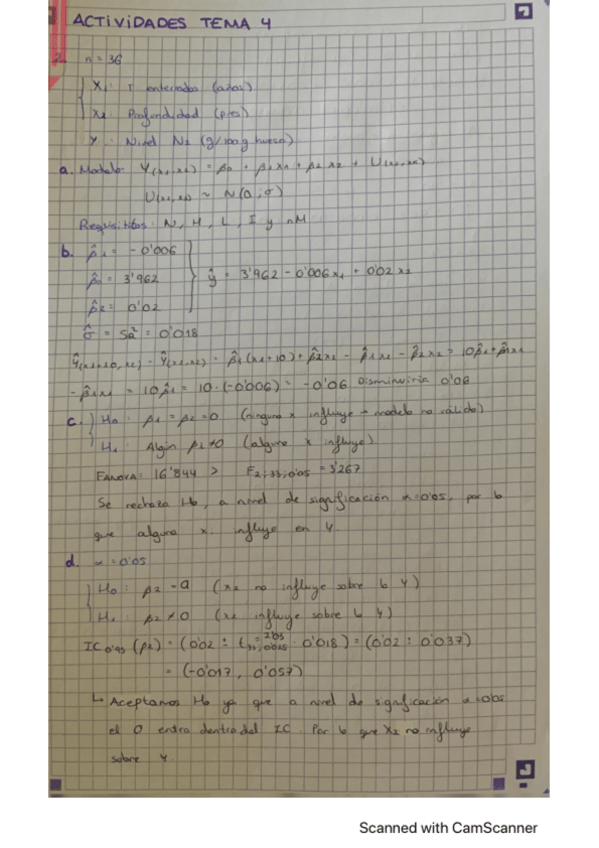 ACTIVIDADES TEMA 4
2. n = 36
X1: T enterrados (años)
X2: Profundidad (pies)
Y: Nivel N2 (g/100g hueso)
a. Modelo: Y(x1,x2) = β0 + β1x1 + β2x2 + U(x1,x2)
U(x1,x2) ~ N(0, σ)
Requisitos: N, H, L, I y nM
b. β̂1 = -0'006
β̂0 = 3'962
β̂2 = 0'02
ŷ = 3'962 - 0'006x1 + 0'02x2
σ̂ = Sa² = 0'018
Ŷ(x1+10,x2) - Ŷ(x1,x2) = β̂1(x1+10) + β̂2x2 - β̂1x1 - β̂2x2 = 10β̂1 + β̂1x1
- β̂1x1 = 10β̂1 = 10·(-0'006) = -0'06 Disminuiría 0'06
c. H0: β1 = β2 = 0 (ninguna x influye → modelo no válido)
H1: Algún βi ≠ 0 (alguna x influye)
FANOVA: 16'844 > F2;33;0'05 = 3'267
Se rechaza H0, a nivel de significación α=0'05, por lo
que alguna x influye en Y.
d. α = 0'05
H0: β2 = 0 (x2 no influye sobre la Y)
H1: β2 ≠ 0 (x2 influye sobre la Y)
IC0'95 (β2) = (0'02 ± t33;0'025 = 2'03 · 0'018) = (0'02 ± 0'037)
= (-0'017, 0'057)
↳ Aceptamos H0 ya que a nivel de significación α=0'05
el 0 entra dentro del IC. Por lo que X2 no influye
sobre Y.
Scanned with CamScanner